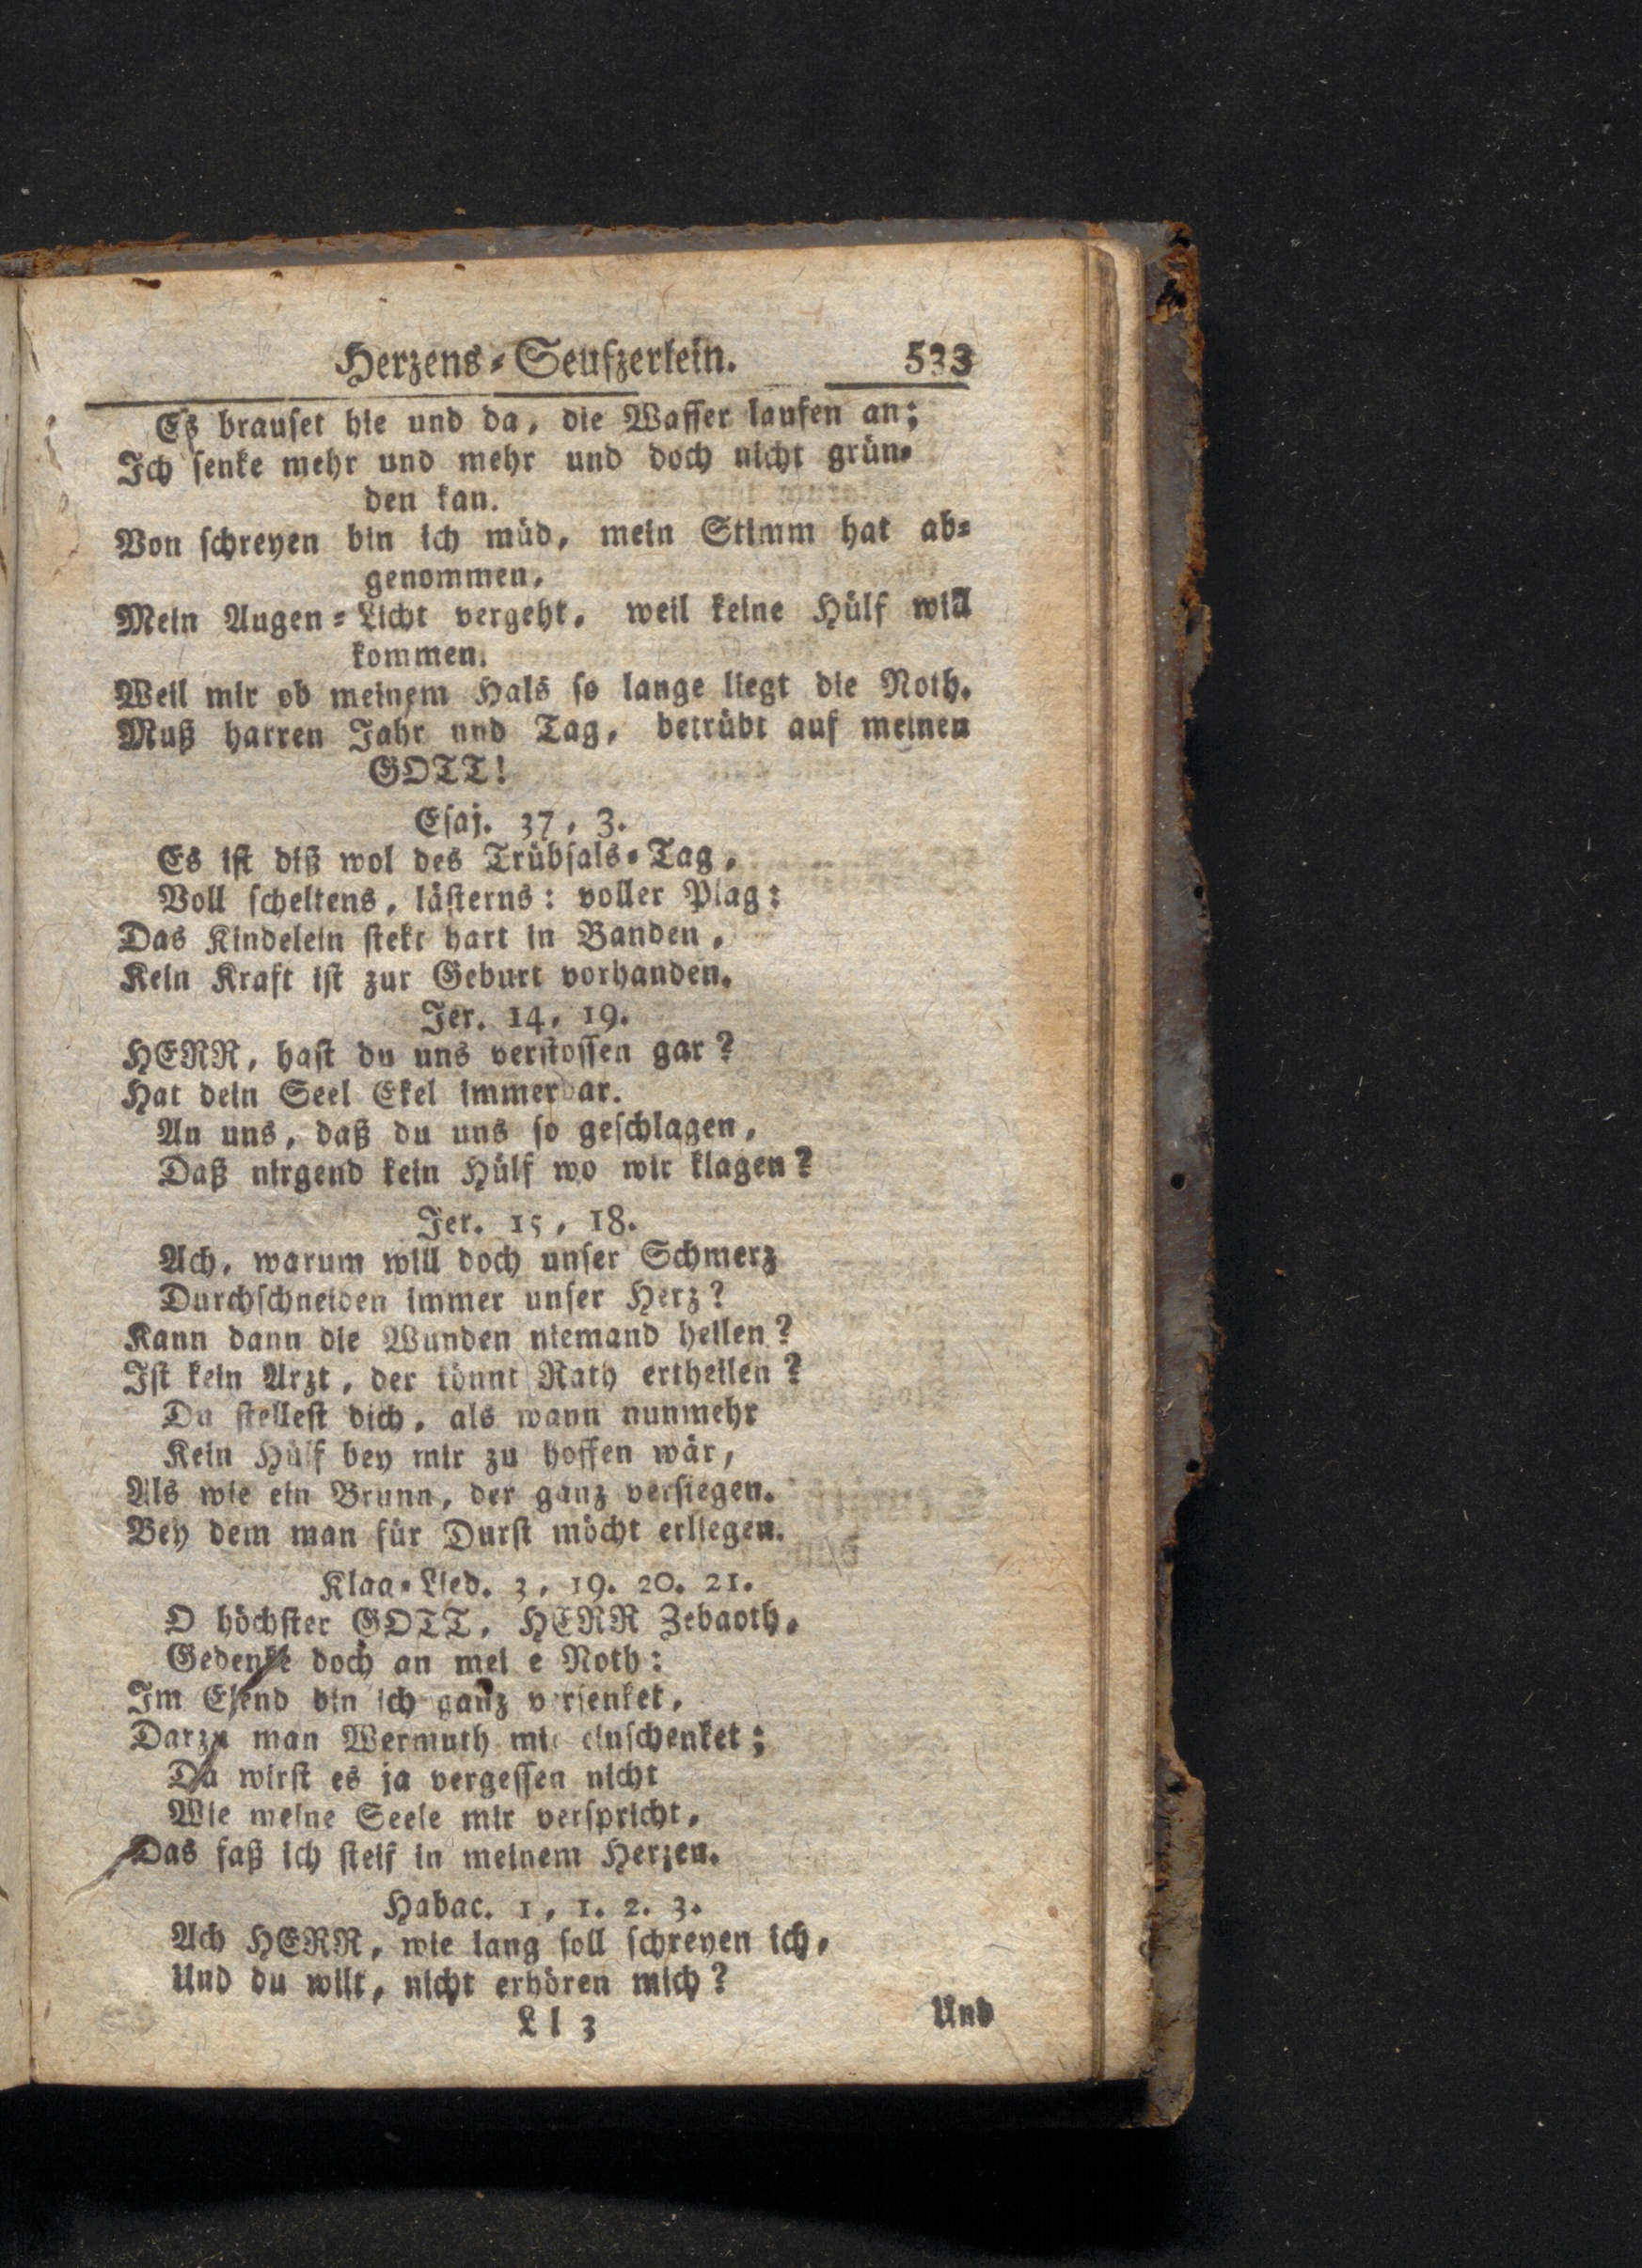 Herzens-Seufzerlein. 533
Es brauset hie und da, die Wasser laufen an;
Ich senke mehr und mehr und doch nicht grün-
den kan.
Von schreyen bin ich müd, mein Stimm hat ab-
genommen,
Mein Augen-Licht vergeht, weil keine Hülf will
kommen.
Weil mir ob meinem Hals so lange liegt die Noth.
Muß harren Jahr und Tag, betrübt auf meinen
GOTT!
Esaj. 37, 3.
Es ist diß wol des Trübsals-Tag,
Voll scheltens, lästerns: voller Plag:
Das Kindelein stekt hart in Banden,
Kein Kraft ist zur Geburt vorhanden.
Jer. 14, 19.
HERR, hast du uns verstossen gar?
Hat dein Seel Ekel immerdar.
An uns, daß du uns so geschlagen,
Daß nirgend kein Hülf wo wir klagen?
Jer. 15, 18.
Ach, warum will doch unser Schmerz
Durchschneiden immer unser Herz?
Kann dann die Wunden niemand heilen?
Ist kein Arzt, der könnt Rath ertheilen?
Du stellest dich, als wann nunmehr
Kein Hülf bey mir zu hoffen wär,
Als wie ein Brunn, der ganz versiegen.
Bey dem man für Durst möcht erliegen.
Klag-Lied. 3, 19. 20. 21.
O höchster GOTT, HERR Zebaoth,
Gedenke doch an mei e Noth:
Im Elend bin ich ganz versenket,
Darzu man Wermuth mir einschenket;
Du wirst es ja vergessen nicht
Wie meine Seele mir verspricht,
Das faß ich steif in meinem Herzen.
Habac. 1, 1. 2. 3.
Ach HERR, wie lang soll schreyen ich,
Und du wilt, nicht erhören mich?
Ll 3 Und